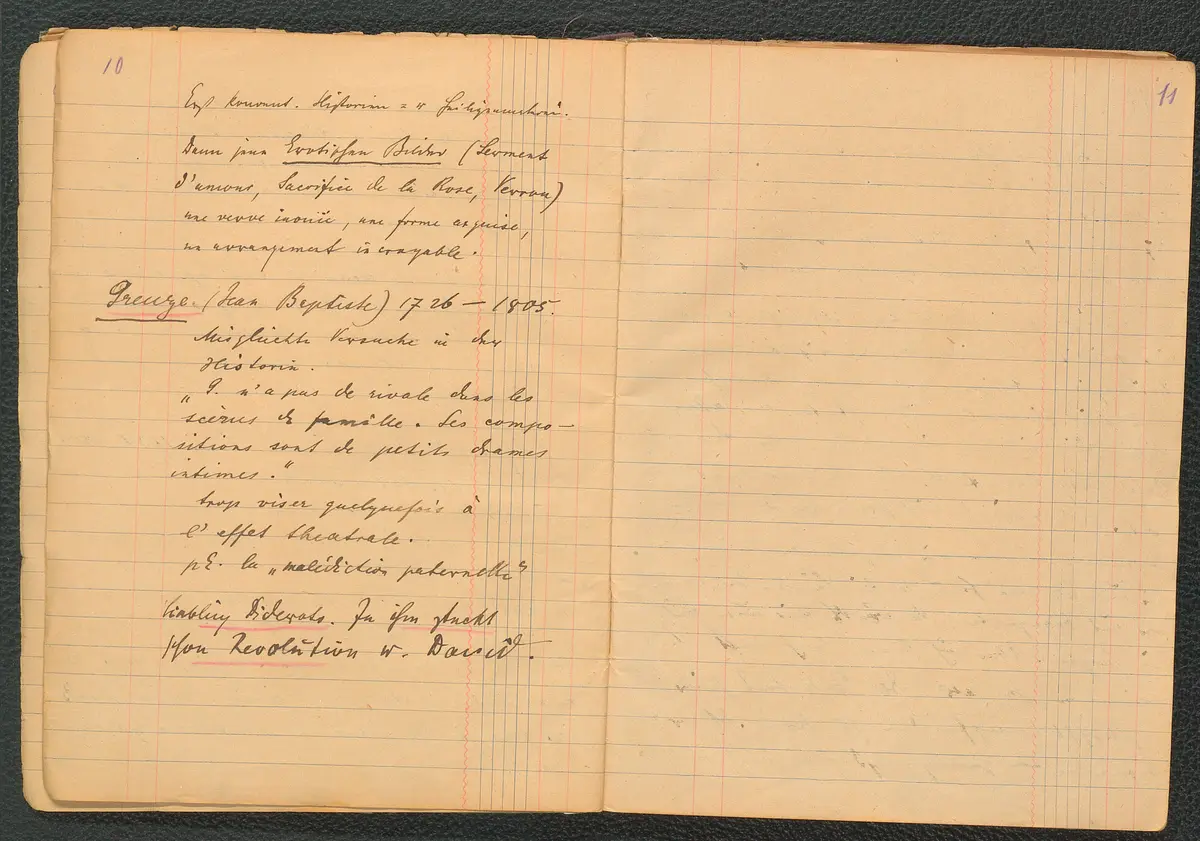 10
Erst konvent. Historien = u Heiligenmalerei.
Dann jene Erotischen Bilder (Serment
d'amour, Sacrifice de la Rose, Verrou)
une verve inouïe, une forme exquise,
un arrangement incroyable.
Greuze. (Jean Baptiste) 1726 – 1805.
Misglückte Versuche in der
Historie.
„G. n'a pas de rivale dans les
scènes de famille. Ses compo-
sitions sont de petits drames
intimes."
trop viser quelquefois à
l'effet theatrale.
pE. la „malédiction paternelle"
Liebling Diderots. In ihm steckt
schon Revolution u. David.
11